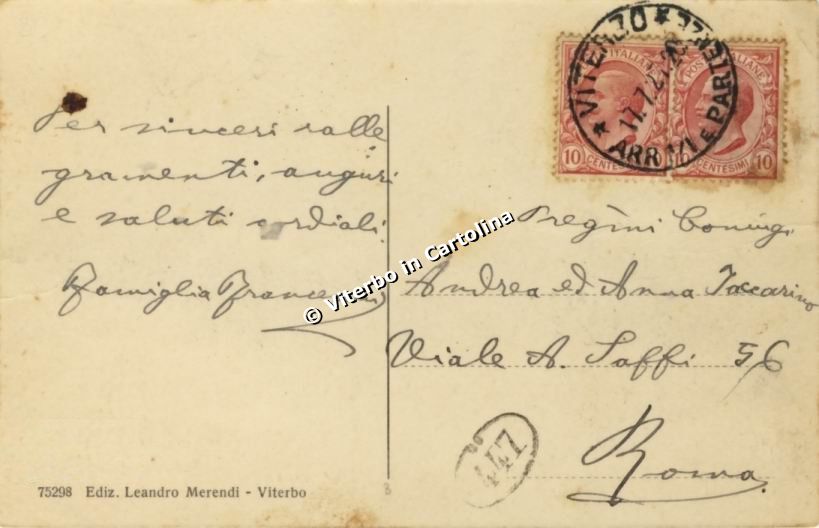 Per sinceri ralle
gramenti, auguri
e saluti cordiali.
Famiglia
75298 Ediz. Leandro Merendi - Viterbo
POSTE ITALIANE
10 CENTESIMI
POSTE ITALIANE
CENTESIMI 10
* VITERBO *
ARRIVI E PARTENZE
17.7.21
Pregini Coniugi
Andrea ed Anna Taccarino
Viale A. Saffi 56
Roma
447
© Viterbo in Cartolina